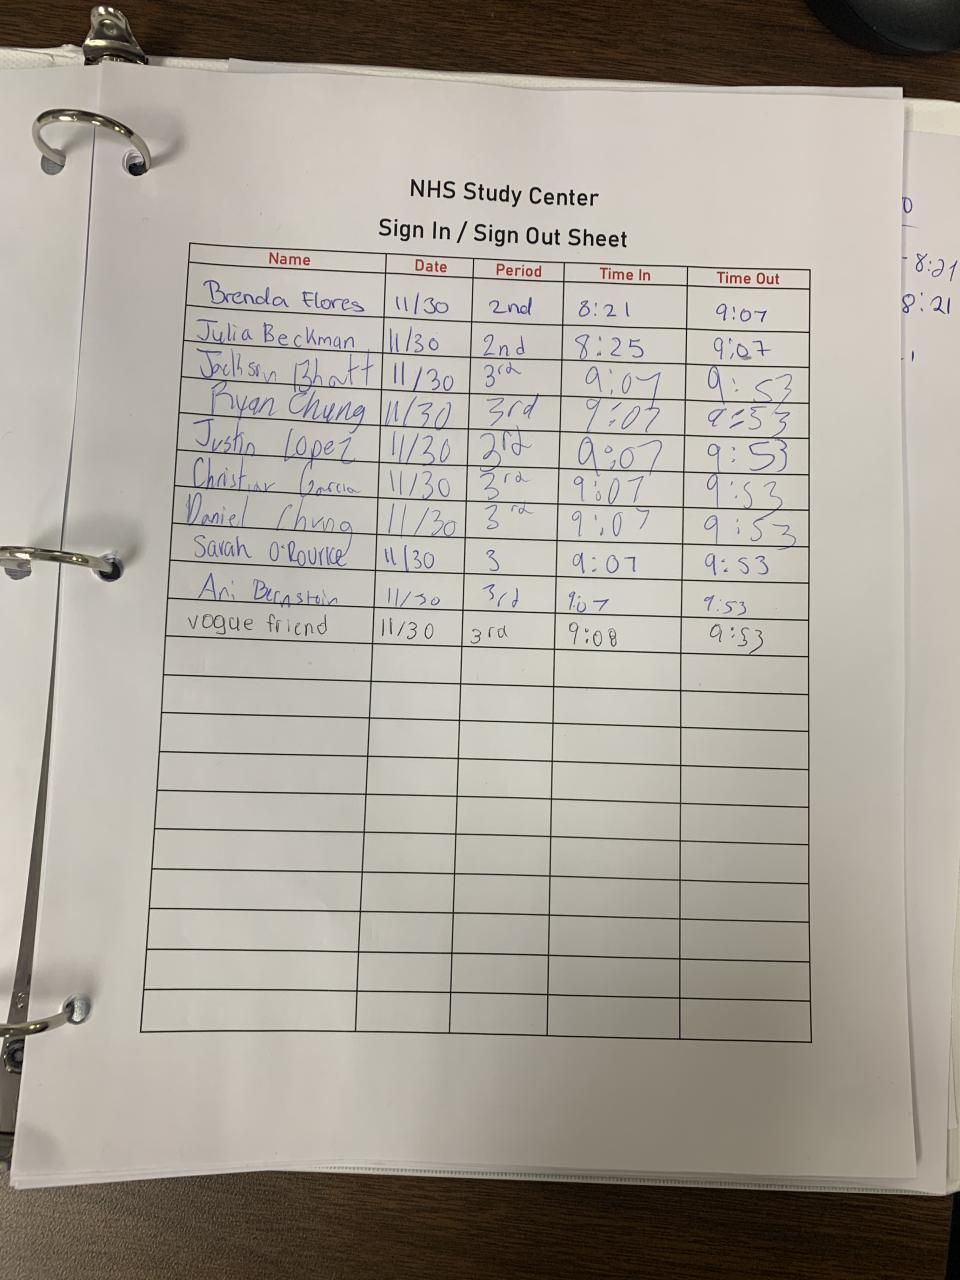 NHS Study Center
Sign In / Sign Out Sheet
Name Date Period Time In Time Out
Brenda Flores 11/30 2nd 8:21 9:07
Julia Beckman 11/30 2nd 8:25 9:07
Jackson Bhatt 11/30 3rd 9:07 9:53
Ryan Chung 11/30 3rd 9:07 9:53
Justin Lopez 11/30 3rd 9:07 9:53
Christian Garcia 11/30 3rd 9:07 9:53
Daniel Chung 11/30 3rd 9:07 9:53
Sarah O'Rourke 11/30 3 9:07 9:53
Ari Bernstein 11/30 3rd 9:07 9:53
vogue friend 11/30 3rd 9:08 9:53
8:21
8:21